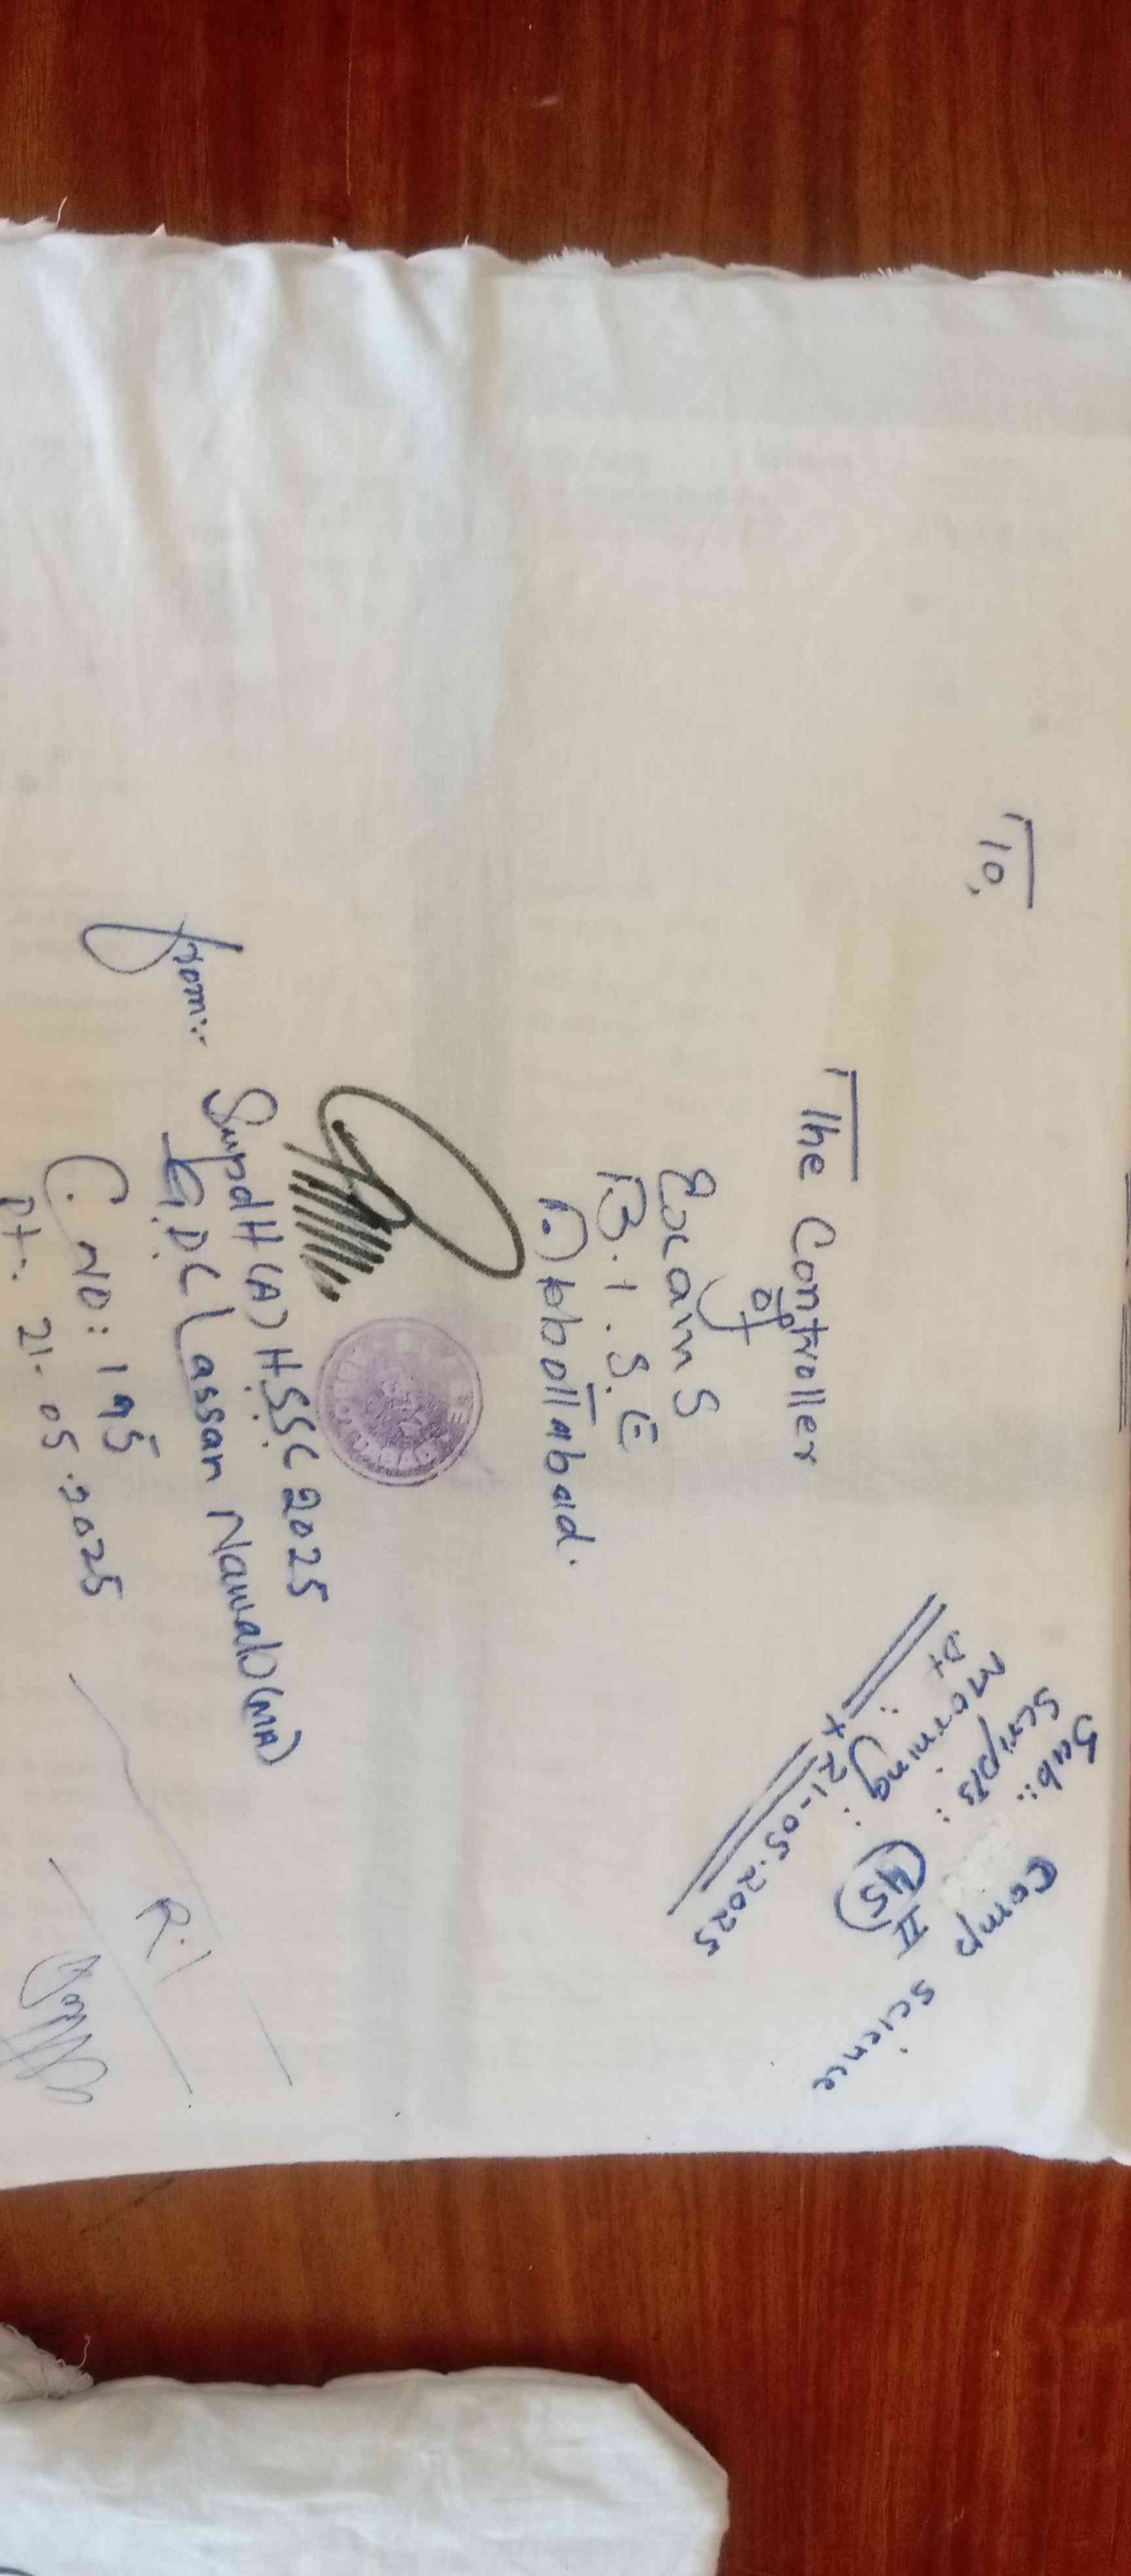 To,
The Controller
of
Exams
B.I.S.E
Abbottabad.
Sub:. Comp Science
Scripts: 45 II
Morning:
Dt :. 21-05-2025
from:. Supdtt (A) HSSC 2025
GDC Lassan Nawab (MA)
C. No: 195
Dt:. 21.05.2025
R.I